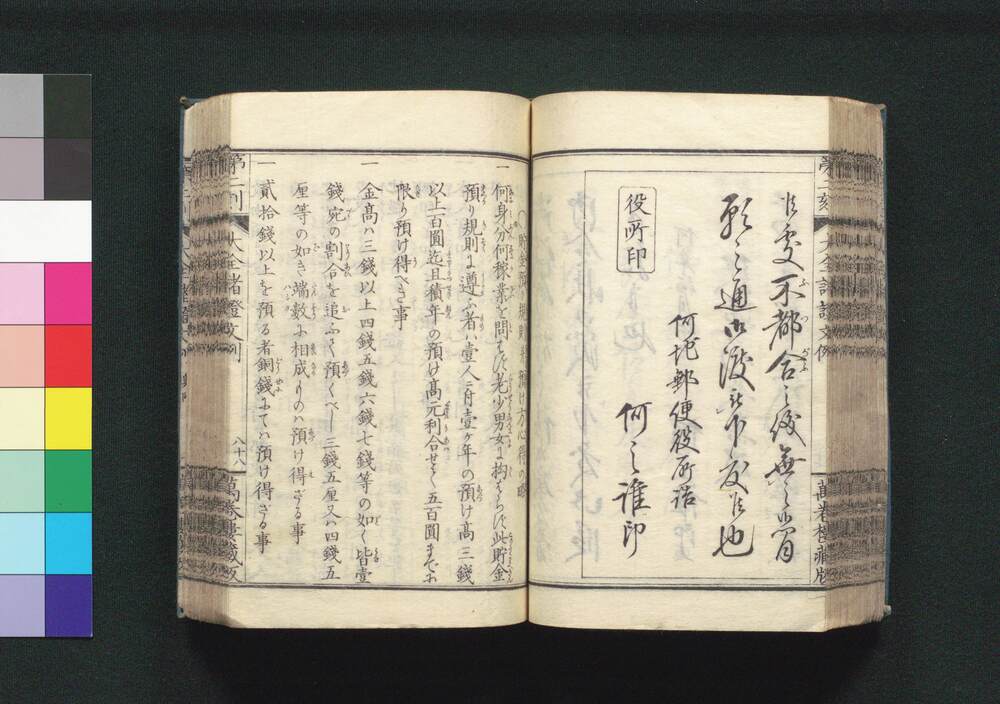 第二刻
大全諸證文例
萬巻樓藏版
此处不都合之儀無之者
願之通御渡可下度候也
何地郵便役所詰
何之誰印
役所印
貯金預り規則并預け方心得の
一 何身分何稼業を問はず老少男女に拘はらず此貯金
預り規則に遵ふ者ハ壹人ニ付壹ヶ年の預け高三錢
以上百圓迄且積年の預け高元利合せて五百圓まてお
限り預け得べき事
一 金高ハ三錢以上四錢五錢六錢七錢等の如く皆壹
錢宛の割合を追ふて預くべし三錢五厘又ハ四錢五
厘等の如き端數に相成ものハ預け得ざる事
一 貳拾錢以上を預る者銅錢にてハ預け得ざる事
大全諸證文例
八十八
萬巻樓藏版